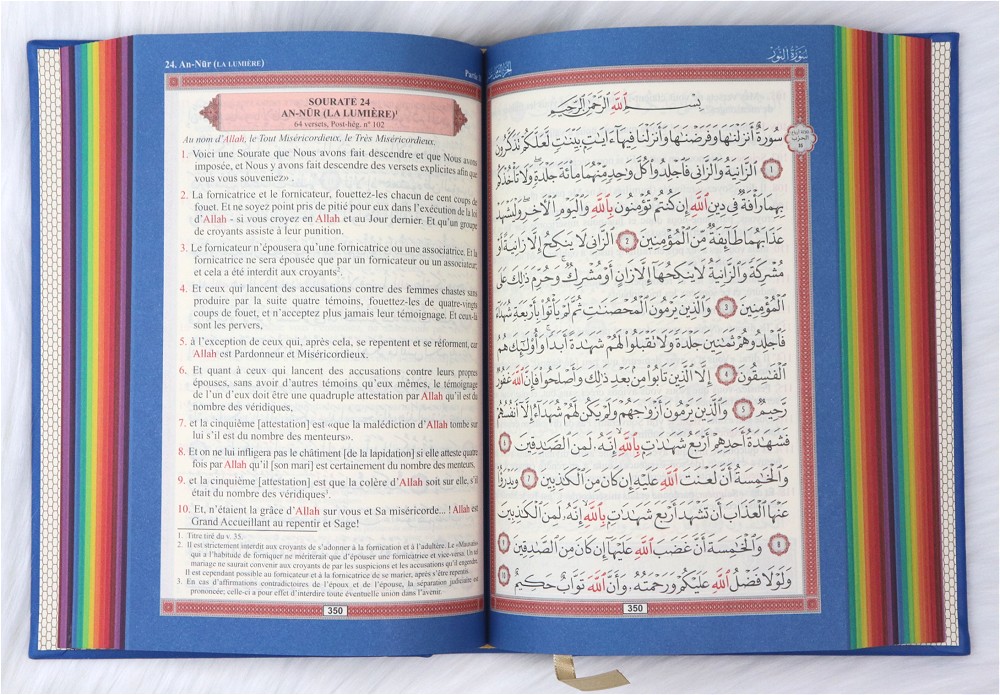 24. An-Nūr (LA LUMIÈRE)
SOURATE 24
AN-NŪR (LA LUMIÈRE)¹
64 versets, Post-hég. n° 102
Au nom d'Allah, le Tout Miséricordieux, le Très Miséricordieux.
1. Voici une Sourate que Nous avons fait descendre et que Nous avons
imposée, et Nous y avons fait descendre des versets explicites afin que
vous vous souveniez» .
2. La fornicatrice et le fornicateur, fouettez-les chacun de cent coups de
fouet. Et ne soyez point pris de pitié pour eux dans l'exécution de la loi
d'Allah - si vous croyez en Allah et au Jour dernier. Et qu'un groupe
de croyants assiste à leur punition.
3. Le fornicateur n'épousera qu'une fornicatrice ou une associatrice. Et la
fornicatrice ne sera épousée que par un fornicateur ou un associateur;
et cela a été interdit aux croyants².
4. Et ceux qui lancent des accusations contre des femmes chastes sans
produire par la suite quatre témoins, fouettez-les de quatre-vingts
coups de fouet, et n'acceptez plus jamais leur témoignage. Et ceux-là
sont les pervers,
5. à l'exception de ceux qui, après cela, se repentent et se réforment, car
Allah est Pardonneur et Miséricordieux.
6. Et quant à ceux qui lancent des accusations contre leurs propres
épouses, sans avoir d'autres témoins qu'eux mêmes, le témoignage
de l'un d'eux doit être une quadruple attestation par Allah qu'il est du
nombre des véridiques,
7. et la cinquième [attestation] est «que la malédiction d'Allah tombe sur
lui s'il est du nombre des menteurs».
8. Et on ne lui infligera pas le châtiment [de la lapidation] si elle atteste quatre
fois par Allah qu'il [son mari] est certainement du nombre des menteurs,
9. et la cinquième [attestation] est que la colère d'Allah soit sur elle, s'il
était du nombre des véridiques³.
10. Et, n'étaient la grâce d'Allah sur vous et Sa miséricorde... ! Allah est
Grand Accueillant au repentir et Sage!
1. Titre tiré du v. 35.
2. Il est strictement interdit aux croyants de s'adonner à la fornication et à l'adultère. Le «Mauvais»
qui a l'habitude de forniquer ne mériterait que d'épouser une fornicatrice et vice-versa. Un tel
mariage ne saurait convenir aux croyants de par les suspicions et les accusations qu'il engendre.
Il est cependant possible au fornicateur et à la fornicatrice de se marier, après s'être repentis.
3. En cas d'affirmations contradictoires de l'époux et de l'épouse, la séparation judiciaire est
prononcée; celle-ci a pour effet d'interdire toute éventuelle union dans l'avenir.
350
سورة النور
بِسْمِ اللَّهِ الرَّحْمَٰنِ الرَّحِيمِ
سُورَةٌ أَنزَلْنَٰهَا وَفَرَضْنَٰهَا وَأَنزَلْنَا فِيهَآ ءَايَٰتٍۭ بَيِّنَٰتٍ لَّعَلَّكُمْ تَذَكَّرُونَ
١ الزَّانِيَةُ وَالزَّانِى فَاجْلِدُوا۟ كُلَّ وَٰحِدٍ مِّنْهُمَا مِا۟ئَةَ جَلْدَةٍ ۖ وَلَا تَأْخُذْكُم
بِهِمَا رَأْفَةٌ فِى دِينِ اللَّهِ إِن كُنتُمْ تُؤْمِنُونَ بِاللَّهِ وَالْيَوْمِ الْءَاخِرِ ۖ وَلْيَشْهَدْ
عَذَابَهُمَا طَآئِفَةٌ مِّنَ الْمُؤْمِنِينَ ٢ الزَّانِى لَا يَنكِحُ إِلَّا زَانِيَةً أَوْ
مُشْرِكَةً وَالزَّانِيَةُ لَا يَنكِحُهَآ إِلَّا زَانٍ أَوْ مُشْرِكٌ ۚ وَحُرِّمَ ذَٰلِكَ عَلَى
الْمُؤْمِنِينَ ٣ وَالَّذِينَ يَرْمُونَ الْمُحْصَنَٰتِ ثُمَّ لَمْ يَأْتُوا۟ بِأَرْبَعَةِ شُهَدَآءَ
فَاجْلِدُوهُمْ ثَمَٰنِينَ جَلْدَةً وَلَا تَقْبَلُوا۟ لَهُمْ شَهَٰدَةً أَبَدًا ۚ وَأُو۟لَٰٓئِكَ هُمُ
الْفَٰسِقُونَ ٤ إِلَّا الَّذِينَ تَابُوا۟ مِنۢ بَعْدِ ذَٰلِكَ وَأَصْلَحُوا۟ فَإِنَّ اللَّهَ غَفُورٌ
رَّحِيمٌ ٥ وَالَّذِينَ يَرْمُونَ أَزْوَٰجَهُمْ وَلَمْ يَكُن لَّهُمْ شُهَدَآءُ إِلَّآ أَنفُسُهُمْ
فَشَهَٰدَةُ أَحَدِهِمْ أَرْبَعُ شَهَٰدَٰتٍۭ بِاللَّهِ ۙ إِنَّهُۥ لَمِنَ الصَّٰدِقِينَ ٦
وَالْخَٰمِسَةُ أَنَّ لَعْنَتَ اللَّهِ عَلَيْهِ إِن كَانَ مِنَ الْكَٰذِبِينَ ٧ وَيَدْرَؤُا۟
عَنْهَا الْعَذَابَ أَن تَشْهَدَ أَرْبَعَ شَهَٰدَٰتٍۭ بِاللَّهِ ۙ إِنَّهُۥ لَمِنَ الْكَٰذِبِينَ
٨ وَالْخَٰمِسَةَ أَنَّ غَضَبَ اللَّهِ عَلَيْهَآ إِن كَانَ مِنَ الصَّٰدِقِينَ ٩
وَلَوْلَا فَضْلُ اللَّهِ عَلَيْكُمْ وَرَحْمَتُهُۥ وَأَنَّ اللَّهَ تَوَّابٌ حَكِيمٌ ١٠
350